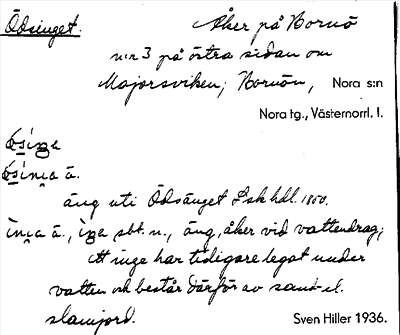 Ödsänget. Åker på Bornö
n:r 3 på östra sidan om
Majorsviken; Bornön, Nora s:n
Nora tg., Västernorrl. l.
äng uti Ödsänget Lsk hdl. 1850.
sbt. n., äng, åker vid vattendrag;
ett inge har tidigare legat under
vatten och består därför av sand el.
slamjord. Sven Hiller 1936.